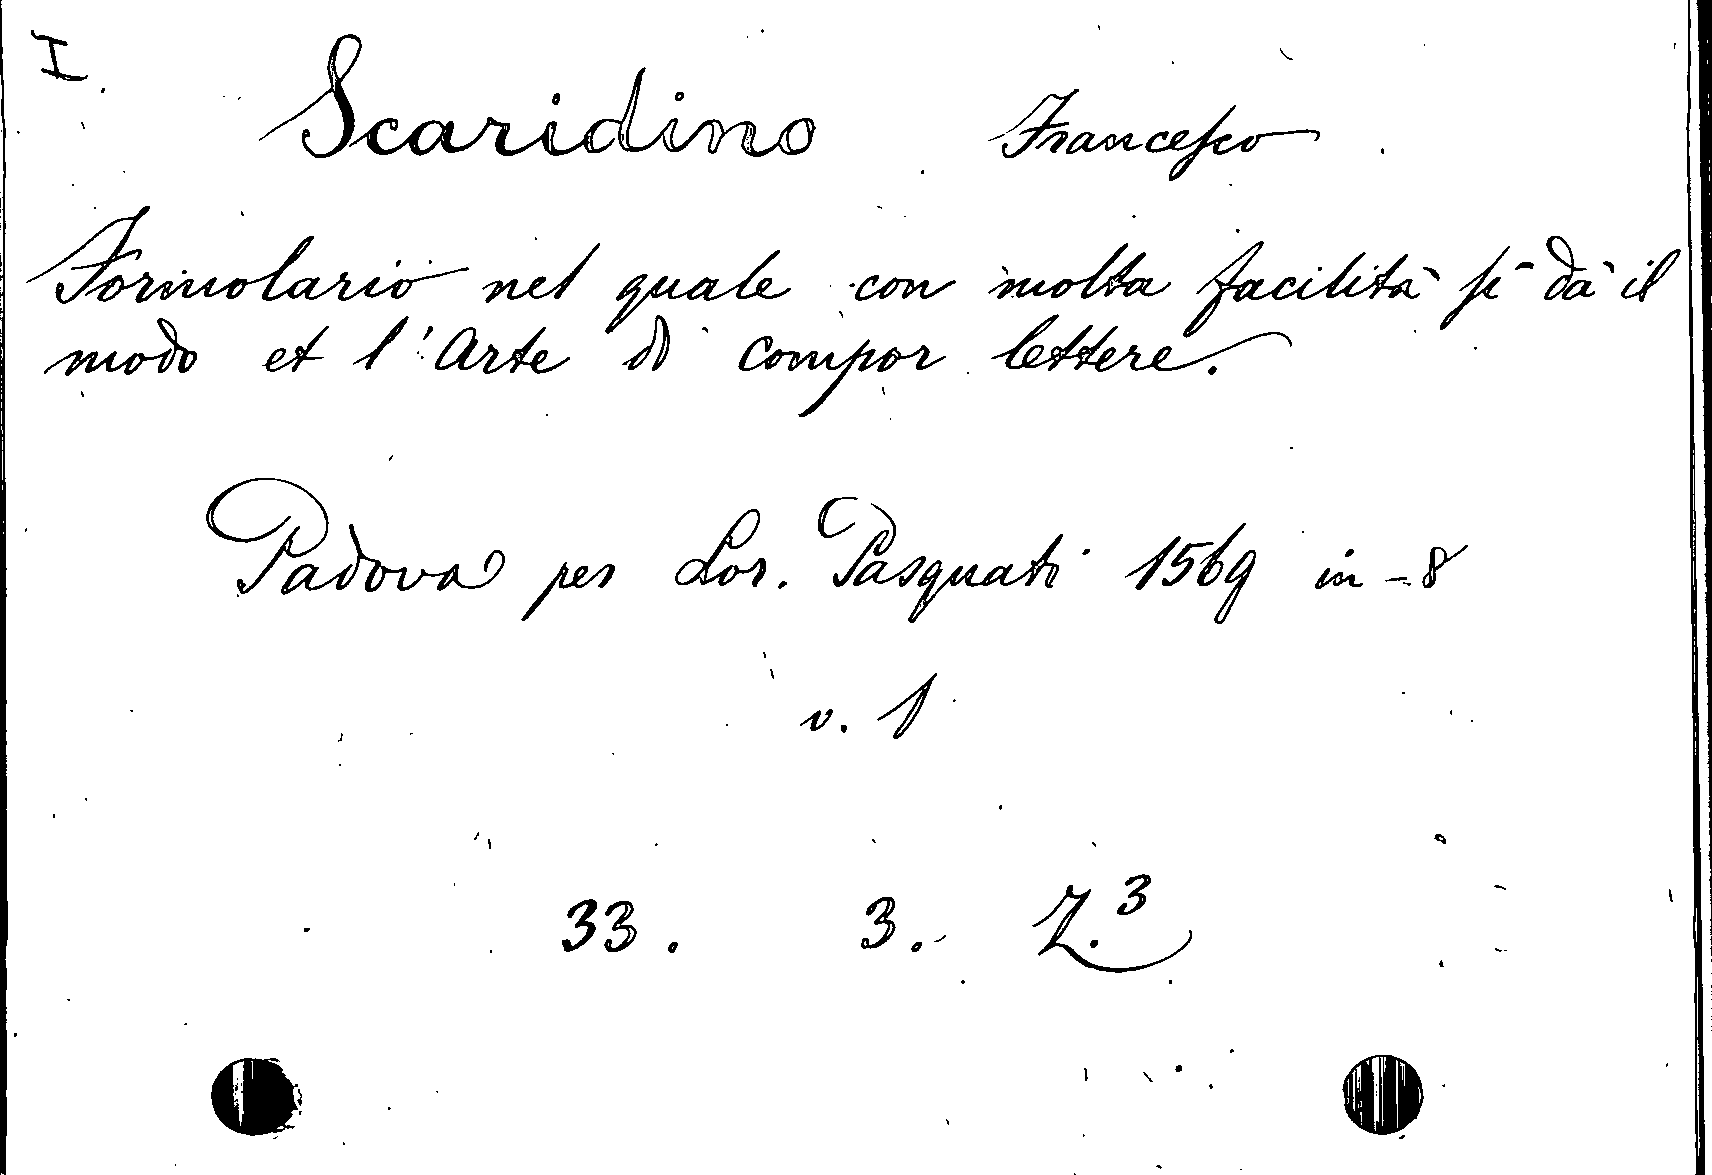 I
Scaridino Francesco
Formolario nel quale con molta facilità si dà il
modo et l'Arte di compor lettere.
Padova per Lor. Pasquati 1569 in-8
v. 1
33. 3. Z.³